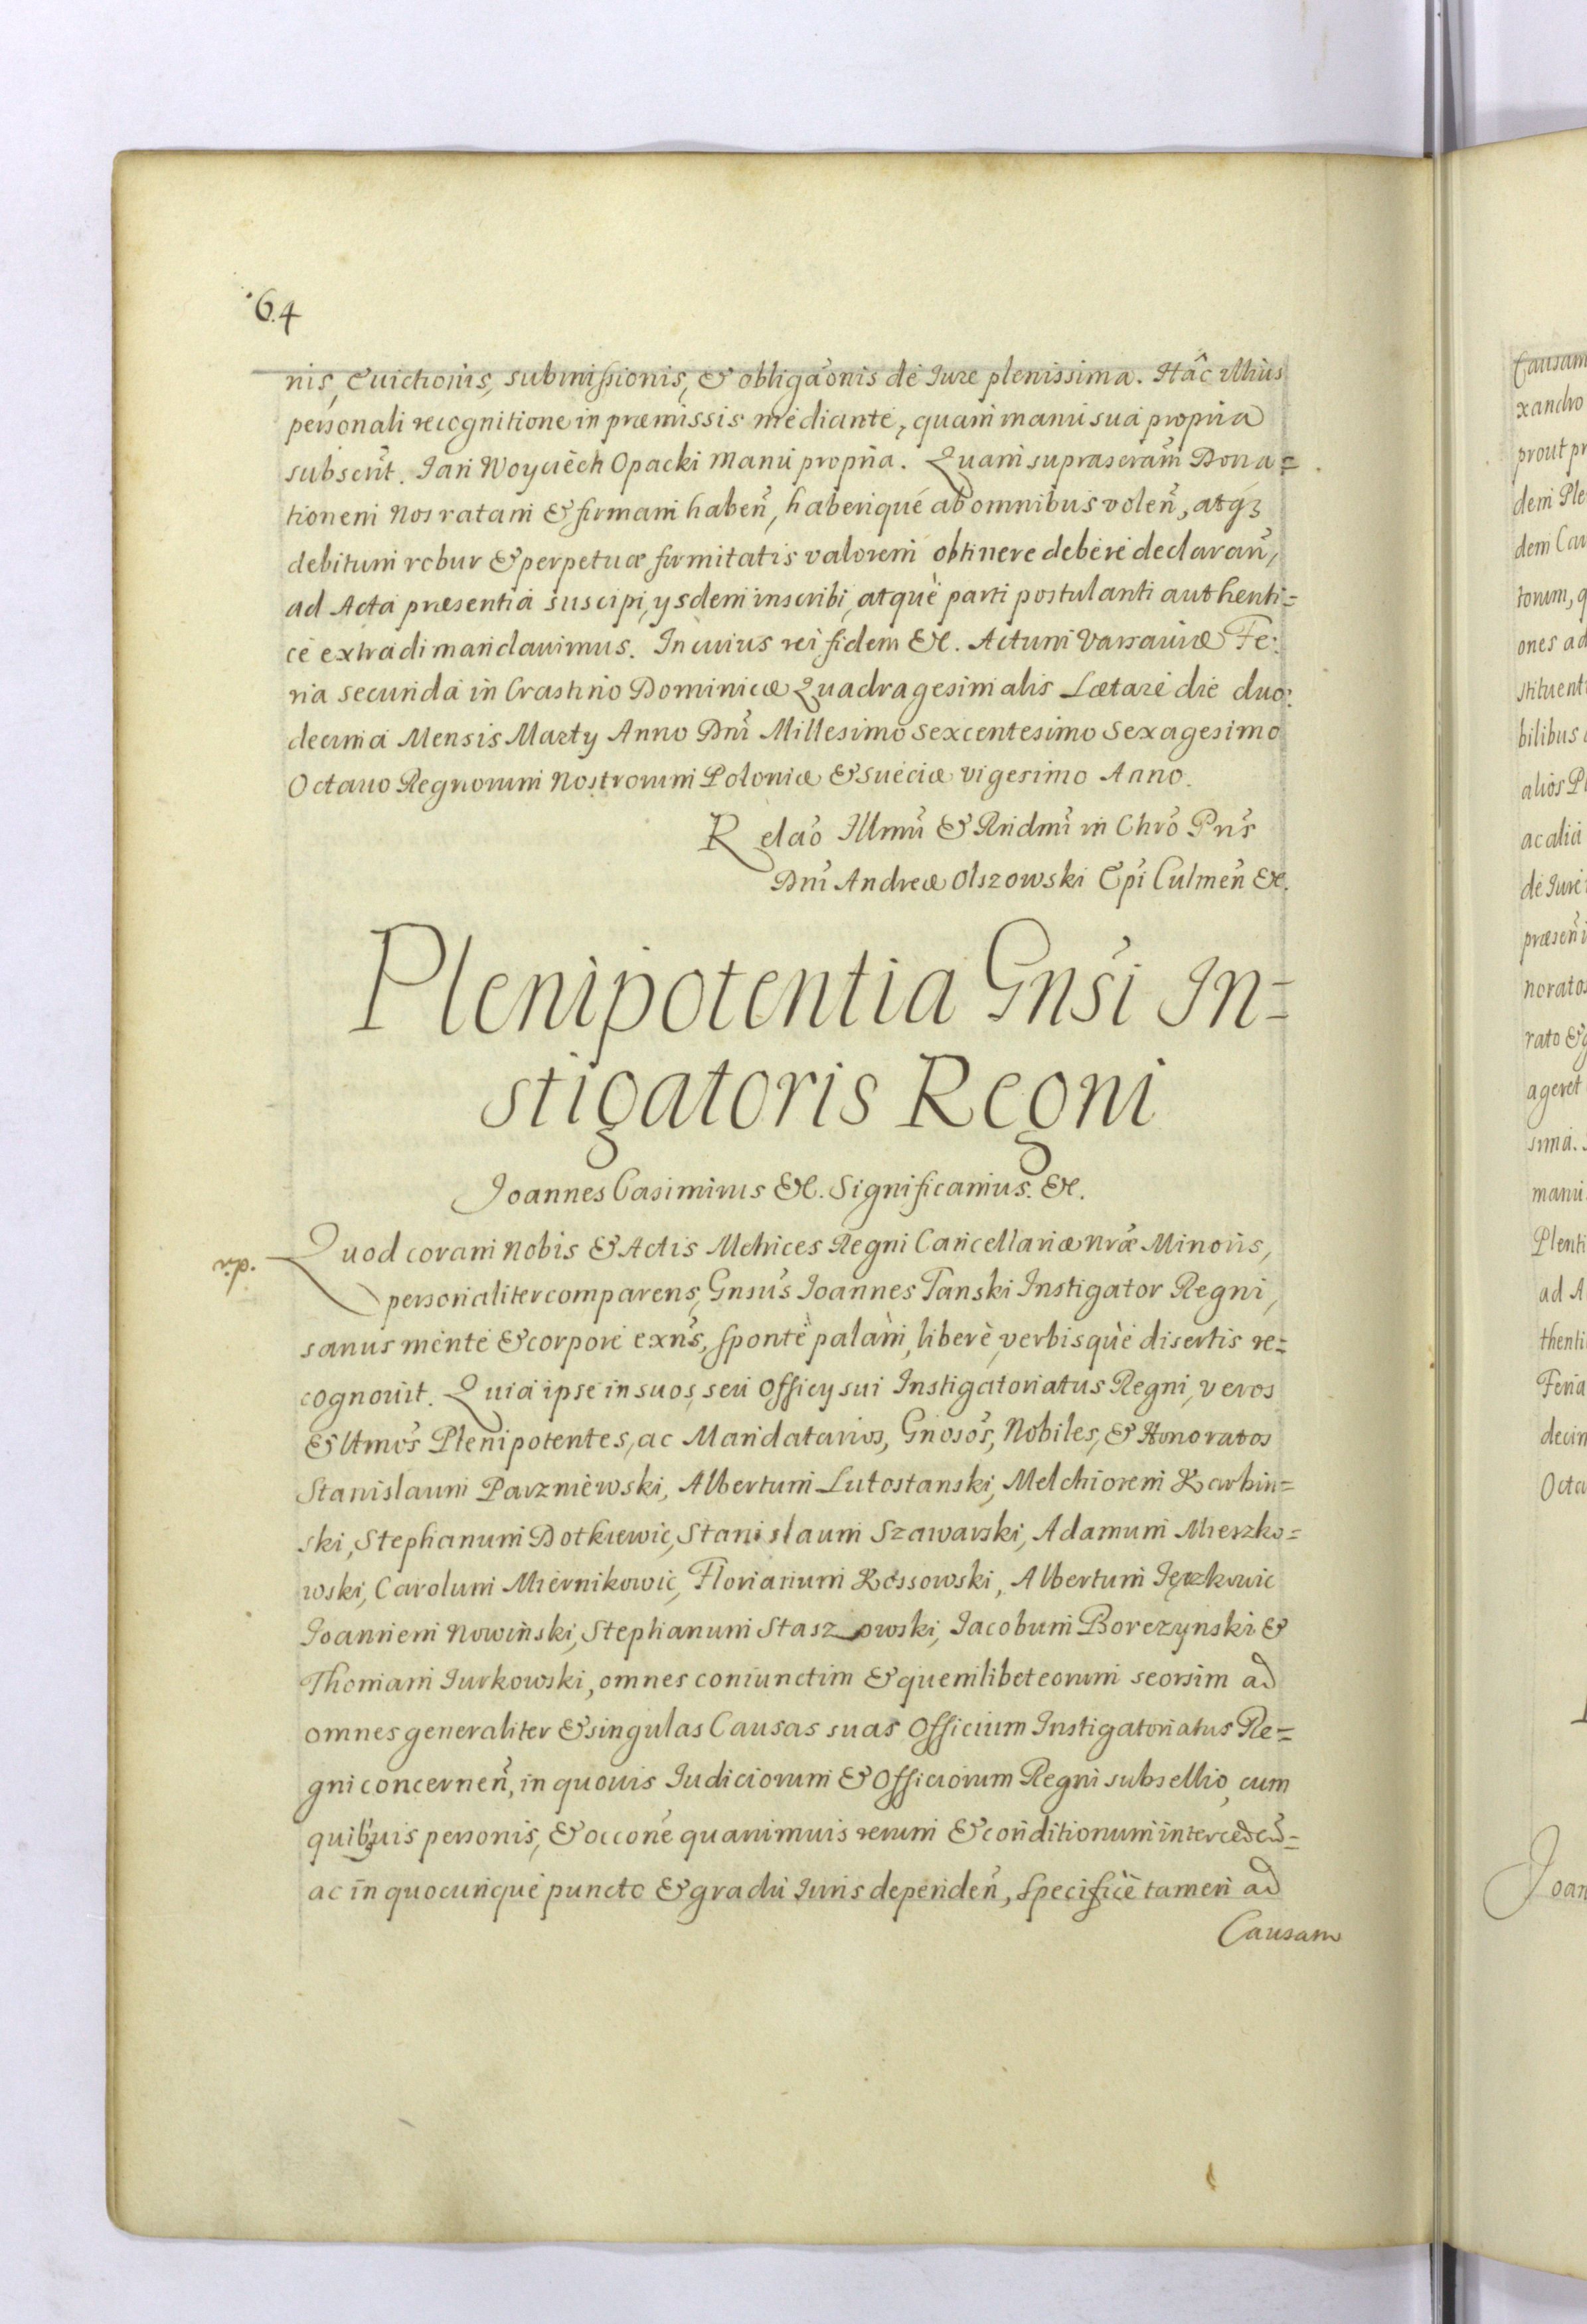 64
nis, Euictionis, submissionis, & obligãonis de Iure plenissima. Hâc illius
personali recognitione in præmissis mediante, quam manu sua propria
subscrit. Jan Woyciech Opacki manu propria. Quam suprascram Dona=
tionem Nos ratam & firmam haben, haberique ab omnibus volen, atqz
debitum robur & perpetuæ firmitatis valorem obtinere debere declaran,
ad Acta præsentia suscipi, ysdem inscribi, atque parti postulanti authenti=
ce extradi mandauimus. In cuius rei fidem &c. Actum Varsauiæ Fe:
ria secunda in Crastino Dominicæ Quadragesimalis Lætare die duo:
decima Mensis Marty Anno Dni Millesimo sexcentesimo sexagesimo
Octauo Regnorum Nostrorum Poloniæ & Sueciæ vigesimo Anno.
Relao Illmi & Rndmi in Chro Pris
Dni Andreæ Olszowski Epi Culmen &c.
Plenipotentia Gnsi In=
stigatoris Regni
Joannes Casimirus &c. Significamus. &c.
Quod coram Nobis & Actis Metrices Regni Cancellariæ nræ Minoris,
personaliter comparens, Gnsus Ioannes Tanski Instigator Regni,
sanus mente & corpore exns, sponte palam, libere, verbisque disertis re=
cognouit. Quia ipse in suos, seu Officy sui Instigatoriatus Regni, veros
& lltmos Plenipotentes, ac Mandatarios, Gnosos, Nobiles, & Honoratos
Stanislaum Parzniewski, Albertum Lutostanski, Melchiorem Karbin=
ski, Stephanum Dotkiewic, Stanislaum Szawarski, Adamum Mieszko=
wski, Carolum Miernikowic, Florianum Kossowski, Albertum
Joannem Nowinski, Stephanum Staszowski, Iacobum Borezynski &
Thomam Iurkowski, omnes coniunctim & quemlibet eorum seorsim ad
omnes generaliter & singulas Causas suas Officium Instigatoriatus Re=
gni concernen, in quouis Iudiciorum & Officiorum Regni subsellio, cum
quibusuis personis, & occone quarumuis rerum & conditionum interceden=
ac in quocunque puncto & gradu Iuris dependen, specifice tamen ad
Causam